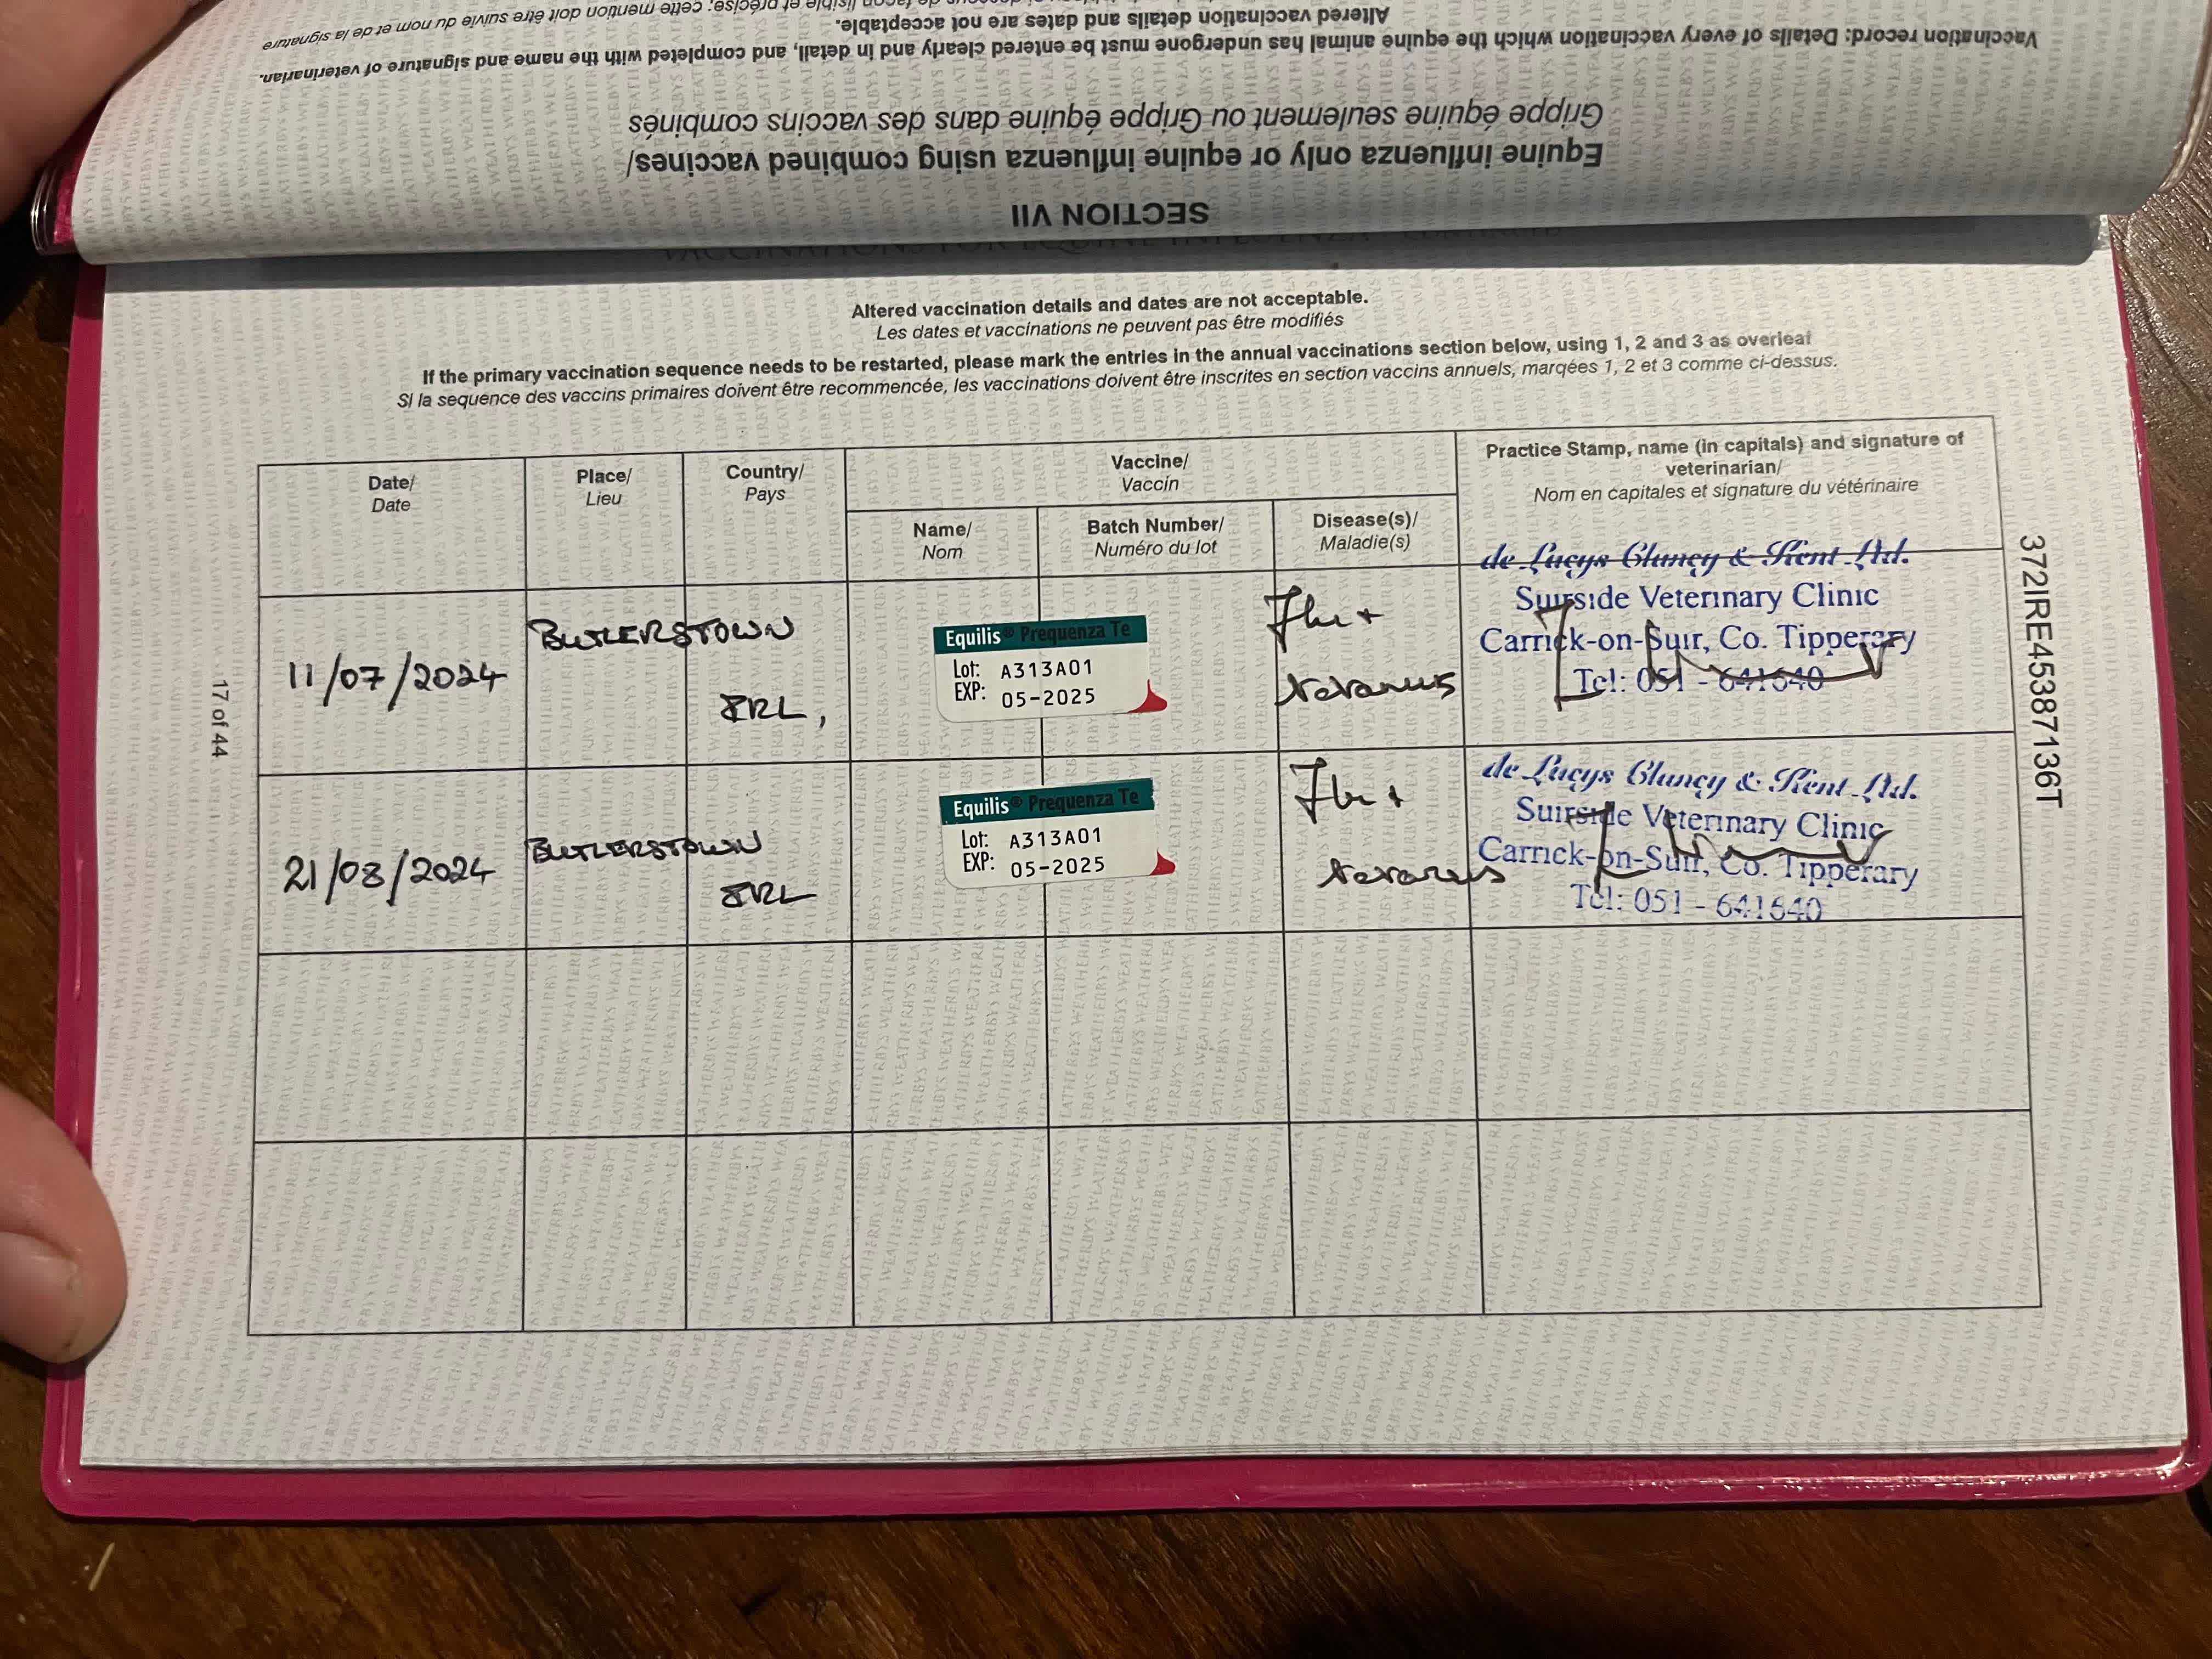 signature
cette mention doit être suivie du nom et de la signature
Altered vaccination details and dates are not acceptable.
Vaccination record: Details of every vaccination which the equine animal has undergone must be entered clearly and in detail, and completed with the name and signature of veterinarian.
Grippe équine seulement ou Grippe équine dans des vaccins combinés
Equine influenza only or equine influenza using combined vaccines/
SECTION VII
Altered vaccination details and dates are not acceptable.
Les dates et vaccinations ne peuvent pas être modifiés
If the primary vaccination sequence needs to be restarted, please mark the entries in the annual vaccinations section below, using 1, 2 and 3 as overleaf
Si la sequence des vaccins primaires doivent être recommencée, les vaccinations doivent être inscrites en section vaccins annuels, marqées 1, 2 et 3 comme ci-dessus.
Date/
Date
Place/
Lieu
Country/
Pays
Vaccine/
Vaccin
Name/
Nom
Batch Number/
Numéro du lot
Disease(s)/
Maladie(s)
Practice Stamp, name (in capitals) and signature of
veterinarian/
Nom en capitales et signature du vétérinaire
11/07/2024
BUTLERSTOWN
IRL,
Equilis® Prequenza Te
Lot: A313A01
EXP: 05-2025
Flu +
tetanus
de Lacys Clancy & Kent Ltd.
Suirside Veterinary Clinic
Carrick-on-Suir, Co. Tipperary
Tel: 051 - 641640
21/08/2024
BUTLERSTOWN
IRL
Equilis® Prequenza Te
Lot: A313A01
EXP: 05-2025
Flu +
tetanus
de Lacys Clancy & Kent Ltd.
Suirside Veterinary Clinic
Carrick-on-Suir, Co. Tipperary
Tel: 051 - 641640
17 of 44
372IRE45387136T